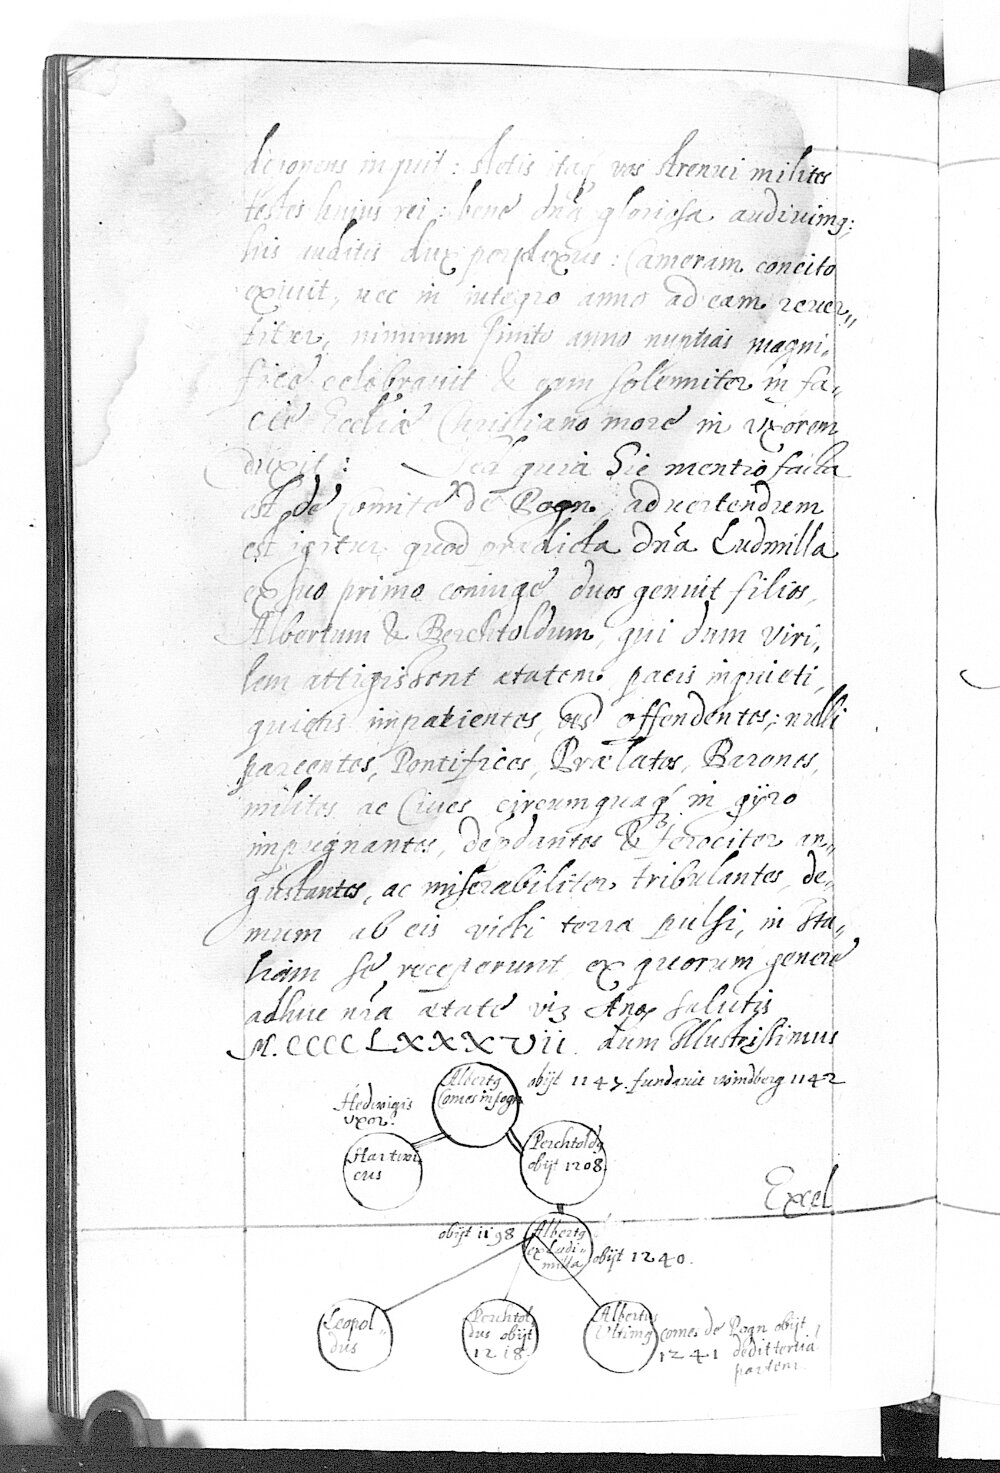 inquit: stetis itaq vos strenui milites
testes huius rei: bene dn̄a gloriosa audiuimg;
his auditis dux perplexus: Cameram concito
exiuit, nec in integro anno ad eam reuer„
titur, nimirum finito anno nuptias magni„
fice celebrauit & eam solenniter in fa„
cie Ecclīæ Christiano more in vxorem
duxit: Sed quia hic mentio facta
est de comite de Pogn, aduertendum
est igitur quod prædicta dn̄a Ludmilla
ex suo primo coniuge duos genuit filios,
Albertum & Berchtoldum, qui dum viri„
lem attigissent ætatem pacis inquieti,
quietis impatientes, oēs offendentes, nulli
parcentes, Pontifices, Prælatos, Barones,
milites ac Ciues circumquaq in gÿro
impugnantes, & ferociter an„
gustantes, ac miserabiliter tribulantes, de„
mum ab eis victi terra pulsi, in Ita„
liam se receperunt ex quorum genere
adhuc nr̄a ætate viz Ano salutis
M.CCCCLXXXVII. dum Illustrissimus
Albertg obijt 1147. fundauit windberg 1142
Comes in Pogn
Hedwigis
vxor.
Hartwi
cus
Perchtoldg
obijt 1208.
Excel
obijt 1198
Albertg
ex Ludi„
milla
obijt 1240.
Leopol„
dus
Perchtol
dus obijt
1218.
Albertus
Vltimg
comes de Pogn obijt
1241 dedit tertiā
partem.